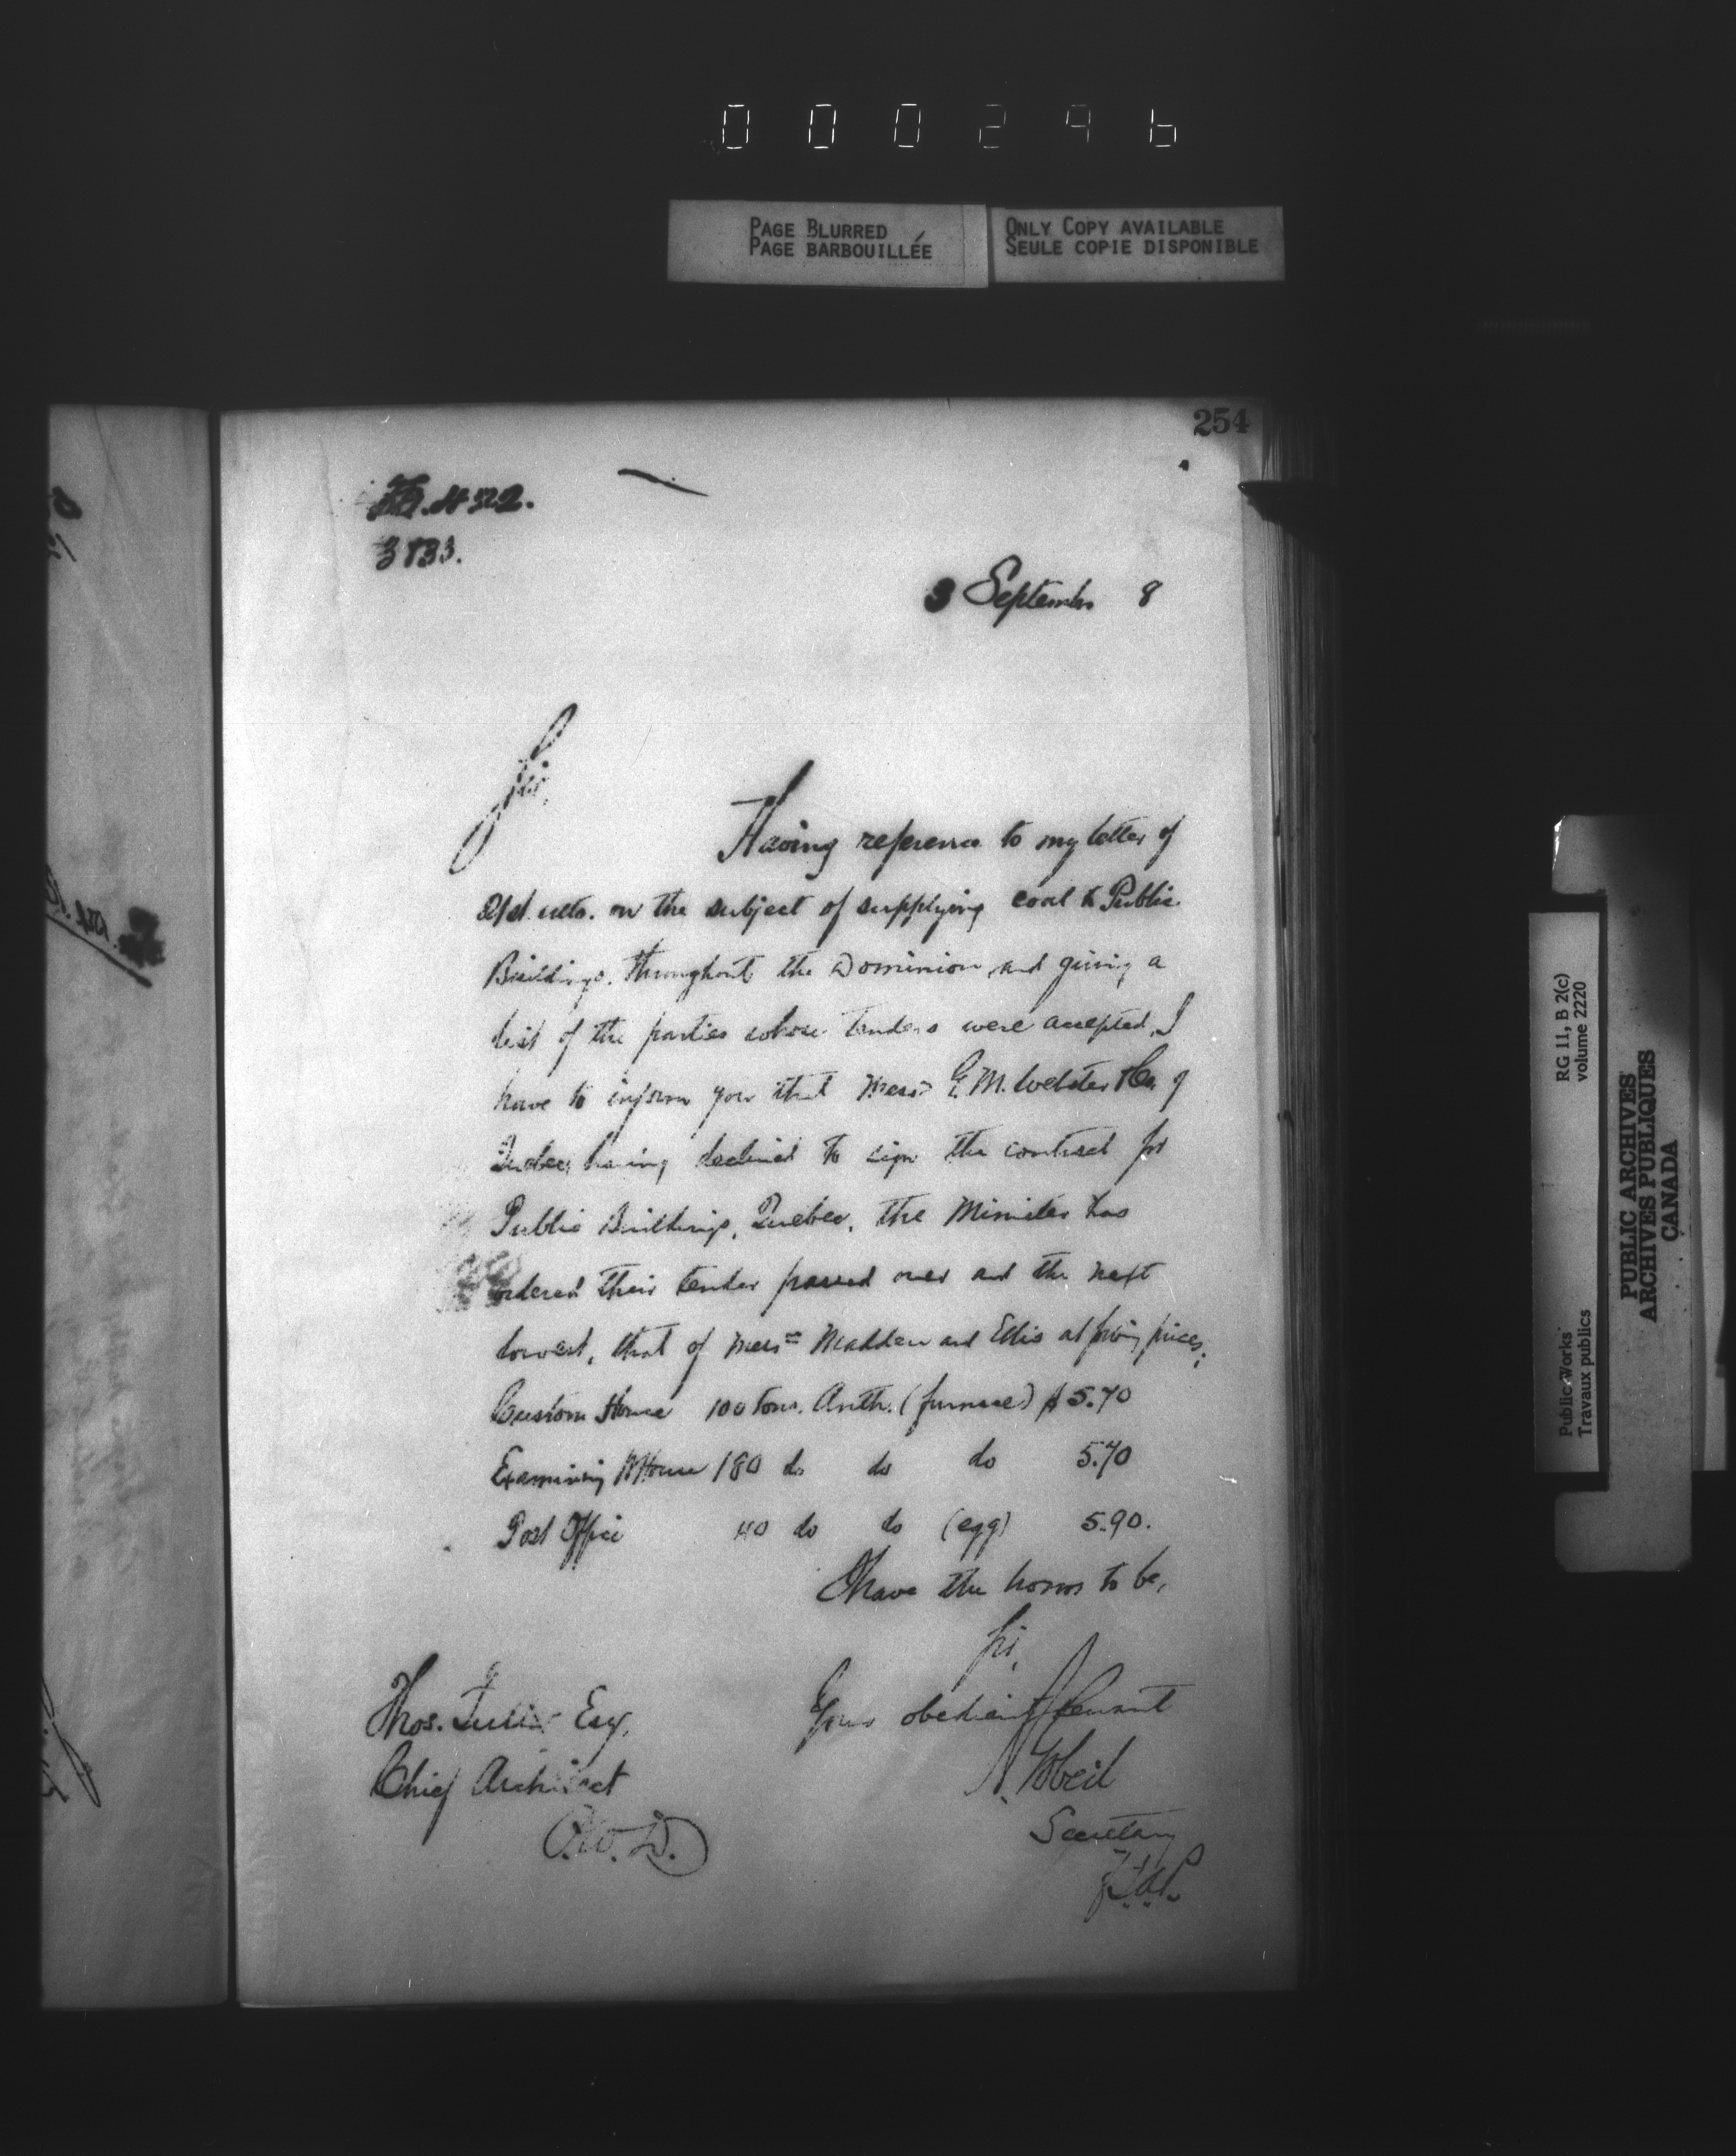 000296
PAGE BLURRED
PAGE BARBOUILLÉE
ONLY COPY AVAILABLE
SEULE COPIE DISPONIBLE
254
3833.
3 September 8
Sir,
Having reference to my letter of
21st ulto. on the subject of supplying coal to Public
Buildings throughout the Dominion and giving a
list of the parties whose tenders were accepted, I
have to inform you that Messrs G. M. Webster & Co. of
Quebec, having declined to sign the contract for
Public Buildings, Quebec, the Minister has
ordered their tender passed over and the next
lowest, that of Messrs Madden and Ellis at prices;
Custom House 100 tons. Anth. (furnace) $5.70
Examining W House 180 do do do 5.70
Post Office 40 do do (egg) 5.90.
I have the honor to be,
Sir,
Your obedient Servant
A. Gobeil
Secretary
Thos. Fuller Esq,
Chief Architect
P.W.D.
RG 11, B 2(c)
volume 2220
Public Works
Travaux publics
PUBLIC ARCHIVES
ARCHIVES PUBLIQUES
CANADA